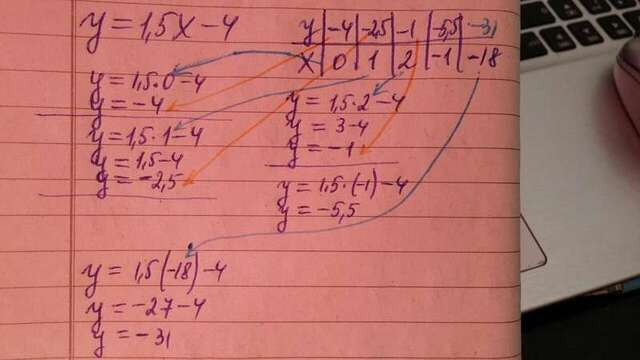 y = 1,5x - 4
y | -4 | -2,5 | -1 | -5,5 | -31
x | 0 | 1 | 2 | -1 | -18
y = 1,5·0-4
y = -4
y = 1,5·1-4
y = 1,5-4
y = -2,5
y = 1,5·2-4
y = 3-4
y = -1
y = 1,5·(-1)-4
y = -5,5
y = 1,5(-18)-4
y = -27-4
y = -31